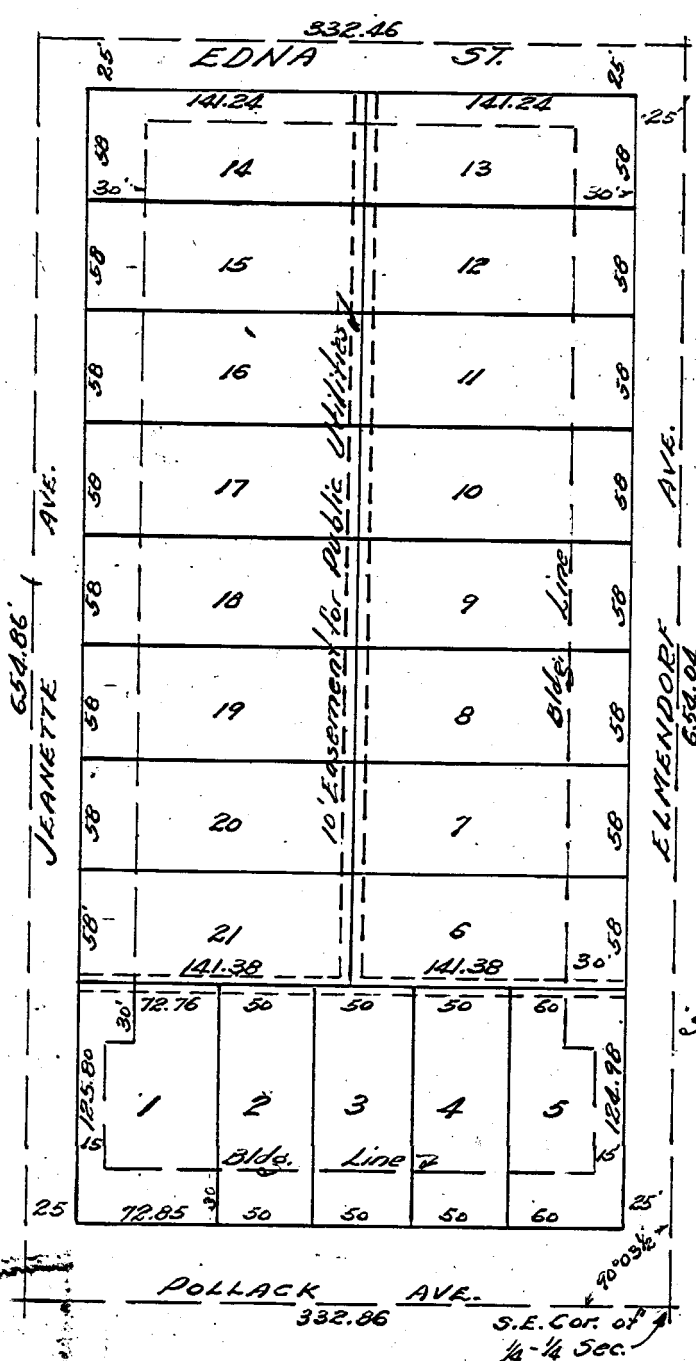 332.46
25' EDNA ST. 25'
141.24 141.24 25'
58 14 13 58
30' 30'
58 15 12 58
58 16 11 58
58 17 10 58
58 18 9 58
58 19 8 58
58 20 7 58
58' 21 6 58
141.38 141.38 30'
10' Easement for Public Utilities
Bldg. Line
JEANETTE AVE.
654.86'
ELMENDORF AVE.
654.04
72.76 50 50 50 60
30'
125.80 1 2 3 4 5 124.98
15 15
Bldg. Line
30
25 72.85 50 50 50 60 25'
POLLACK AVE.
332.86
90°03½'
S.E. Cor. of
1/4-1/4 Sec.